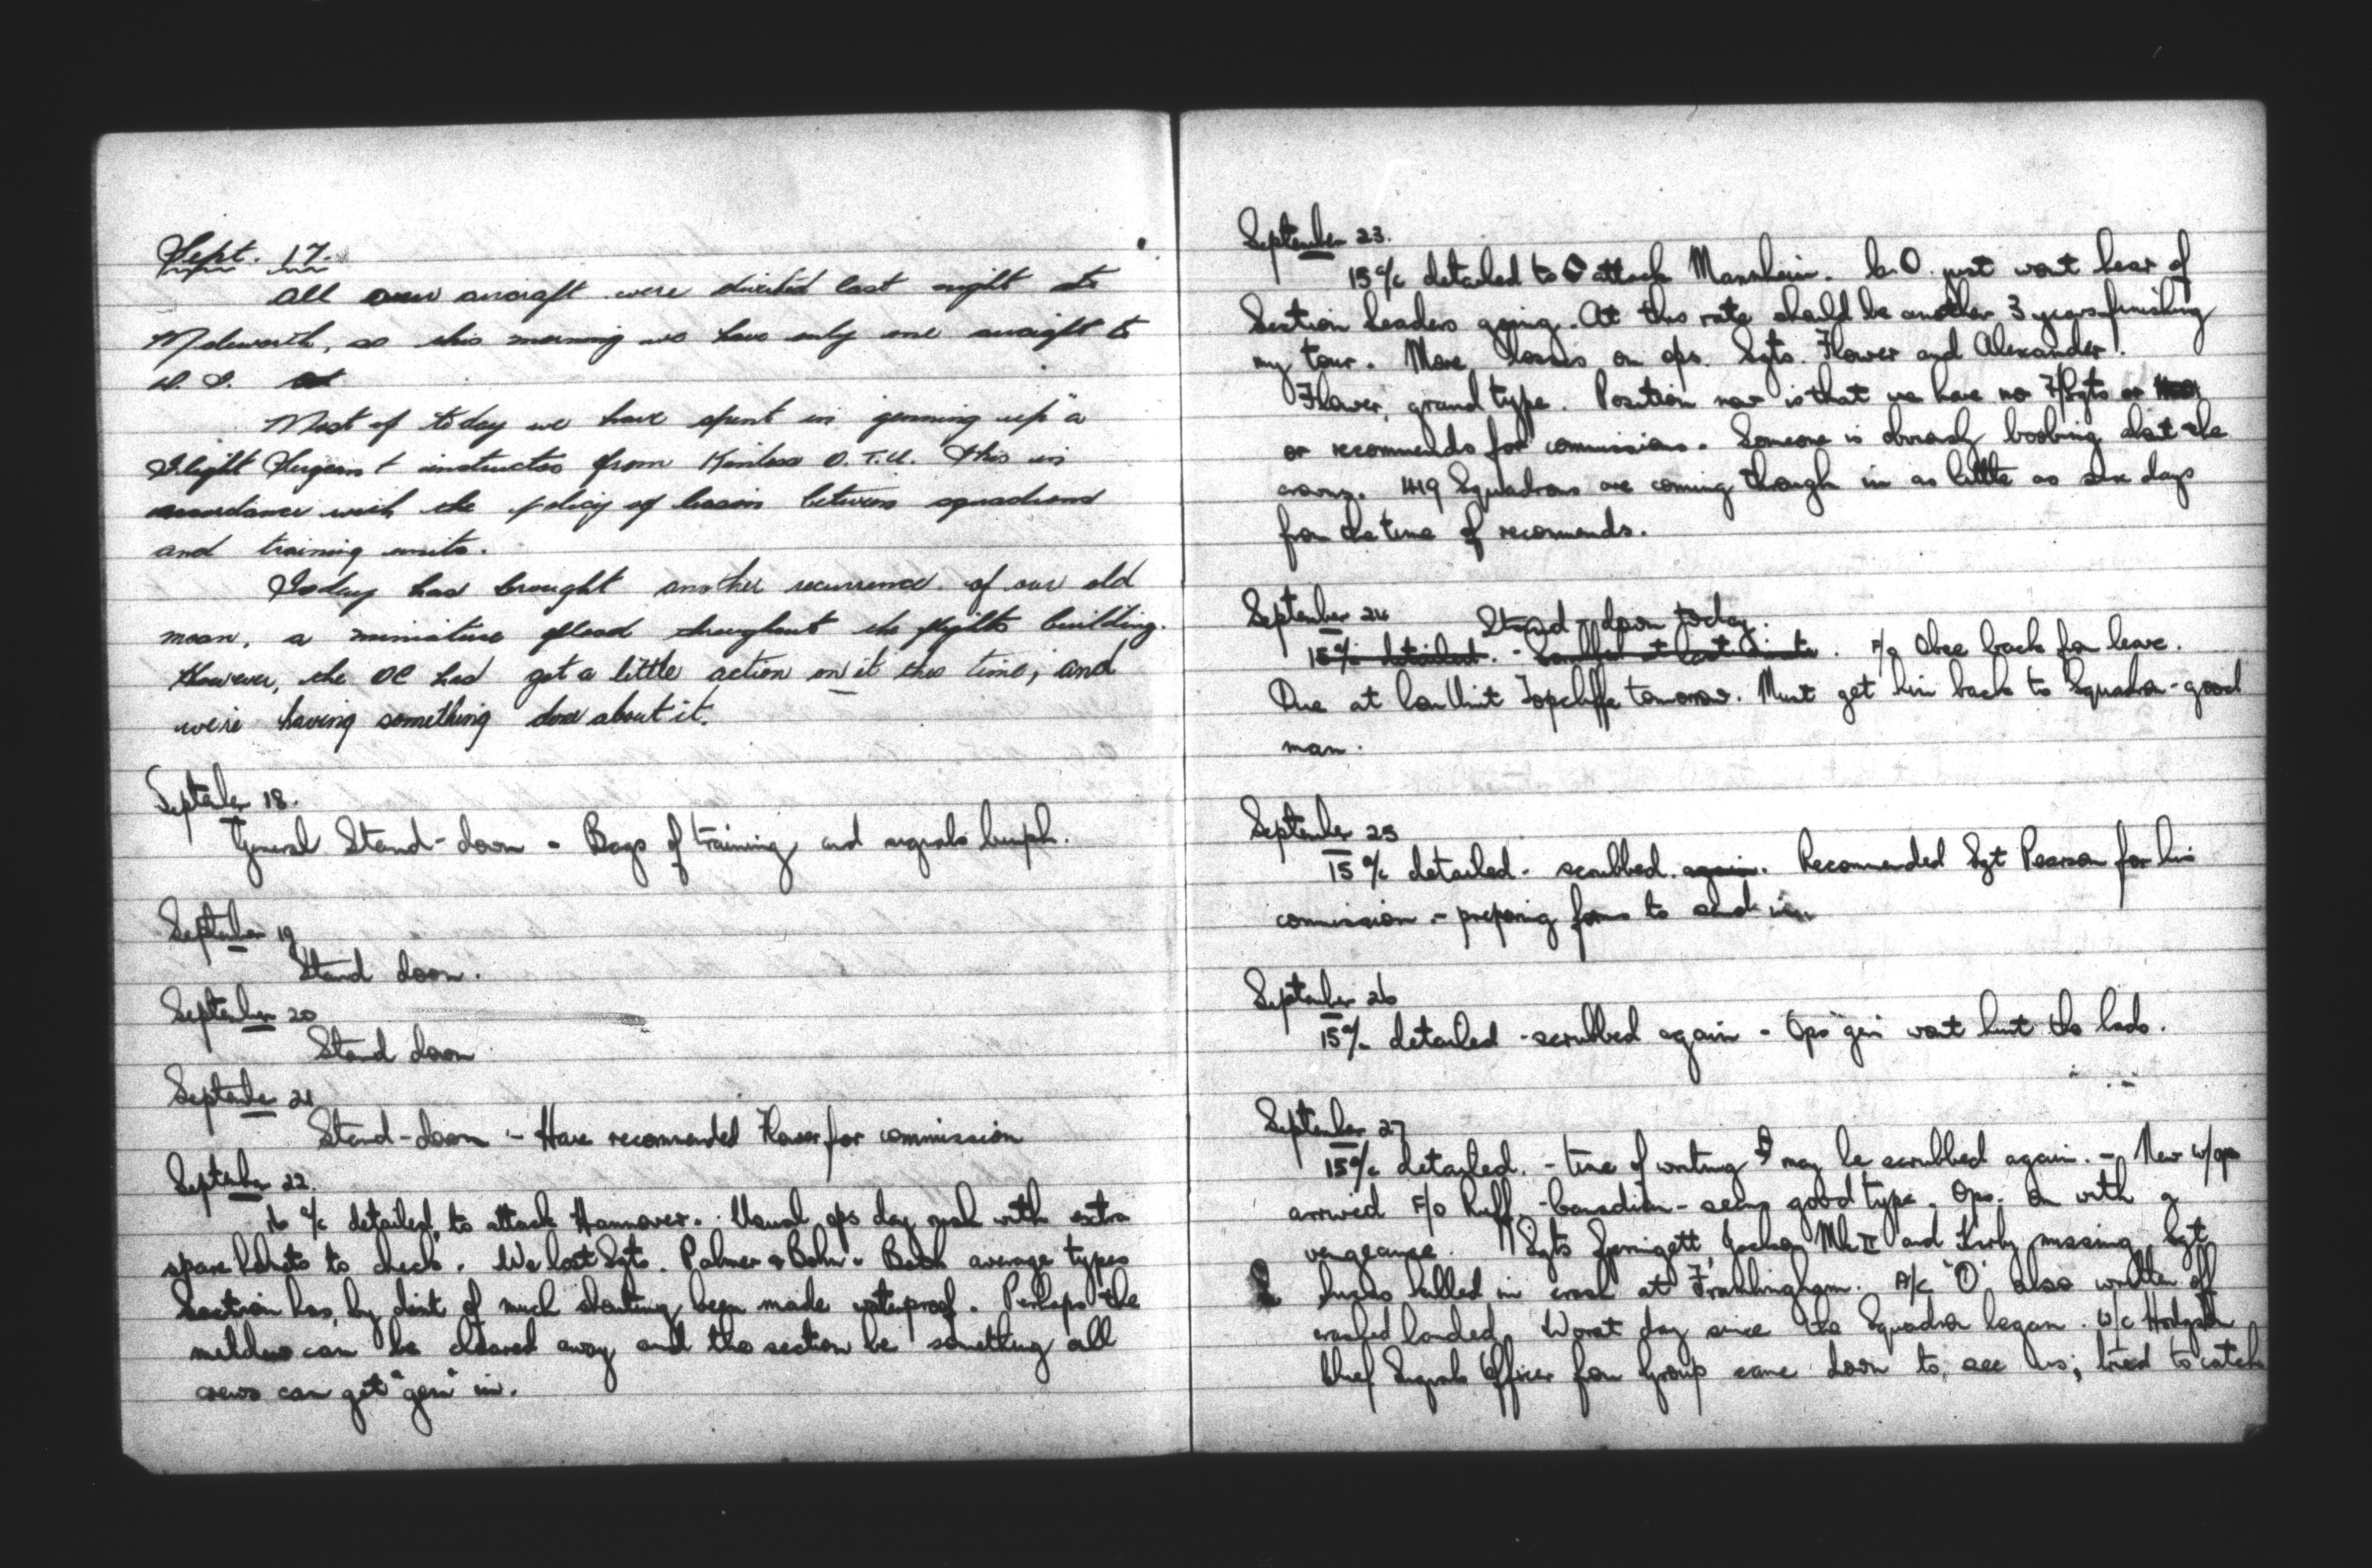 Sept. 17.
All our aircraft were diverted last night to
Molesworth, so this morning we have only one aircraft to
D. I.
Most of today we have spent in "genning up" a
Flight Sergeant instructor from Kinloss O.T.U. This in
accordance with the policy of liason between squadrons
and training units.
Today has brought another recurrence of our old
moan, a miniature flood throughout the flights building.
However, the OC had got a little action on it this time, and
we're having something done about it.
September 18.
General Stand-down - Bags of training and signals bumph.
September 19
Stand down.
September 20
Stand down
September 21
Stand-down - Have recommended Flower for commission
September 22.
16 a/c detailed to attack Hannover. Usual ops day rush with extra
spare to check. We lost Sgts. Palmer & Bohn. Both average types
Section has, by dint of much shouting, been made waterproof. Perhaps the
mildew can be cleared away and the section be something all
crews can get "gen" in.
September 23.
15 a/c detailed to attack Mannheim. C.O. just wont hear of
Section Leaders going. At this rate should be another 3 years finishing
my tour. More losses on ops. Sgts. Flower and Alexander.
Flower, grand type. Position now is that we have no F/Sgts or
or recommends for commissions. Someone is obviously boobing about the
crowns. 419 Squadrons are coming through in as little as six days
from the time of recommends.
September 24 Stand-down today.
15 a/c detailed. - Scrubbed at last minute. P/O Obee back from leave.
Due at Con Unit Topcliffe tomorrow. Must get him back to Squadron - good
man.
September 25
15 a/c detailed - scrubbed again. Recommended Sgt Pearson for his
commission - preparing forms to send in
September 26
15 a/c detailed - scrubbed again - Ops "gen" wont hurt the lads.
September 27
15 a/c detailed. - time of writing may be scrubbed again. - New W/ops
arrived F/O Ruff - Canadian - seems good type. Ops. on with a
vengeance. Sgts Jackson Mk II and Kirby missing. Sgt
killed in crash at Framlingham. A/c "O" also written off
crashed landed. Worst day since the Squadron began. W/C Hodgson
Chief Signals Officer from Group came down to see us; tried to catch